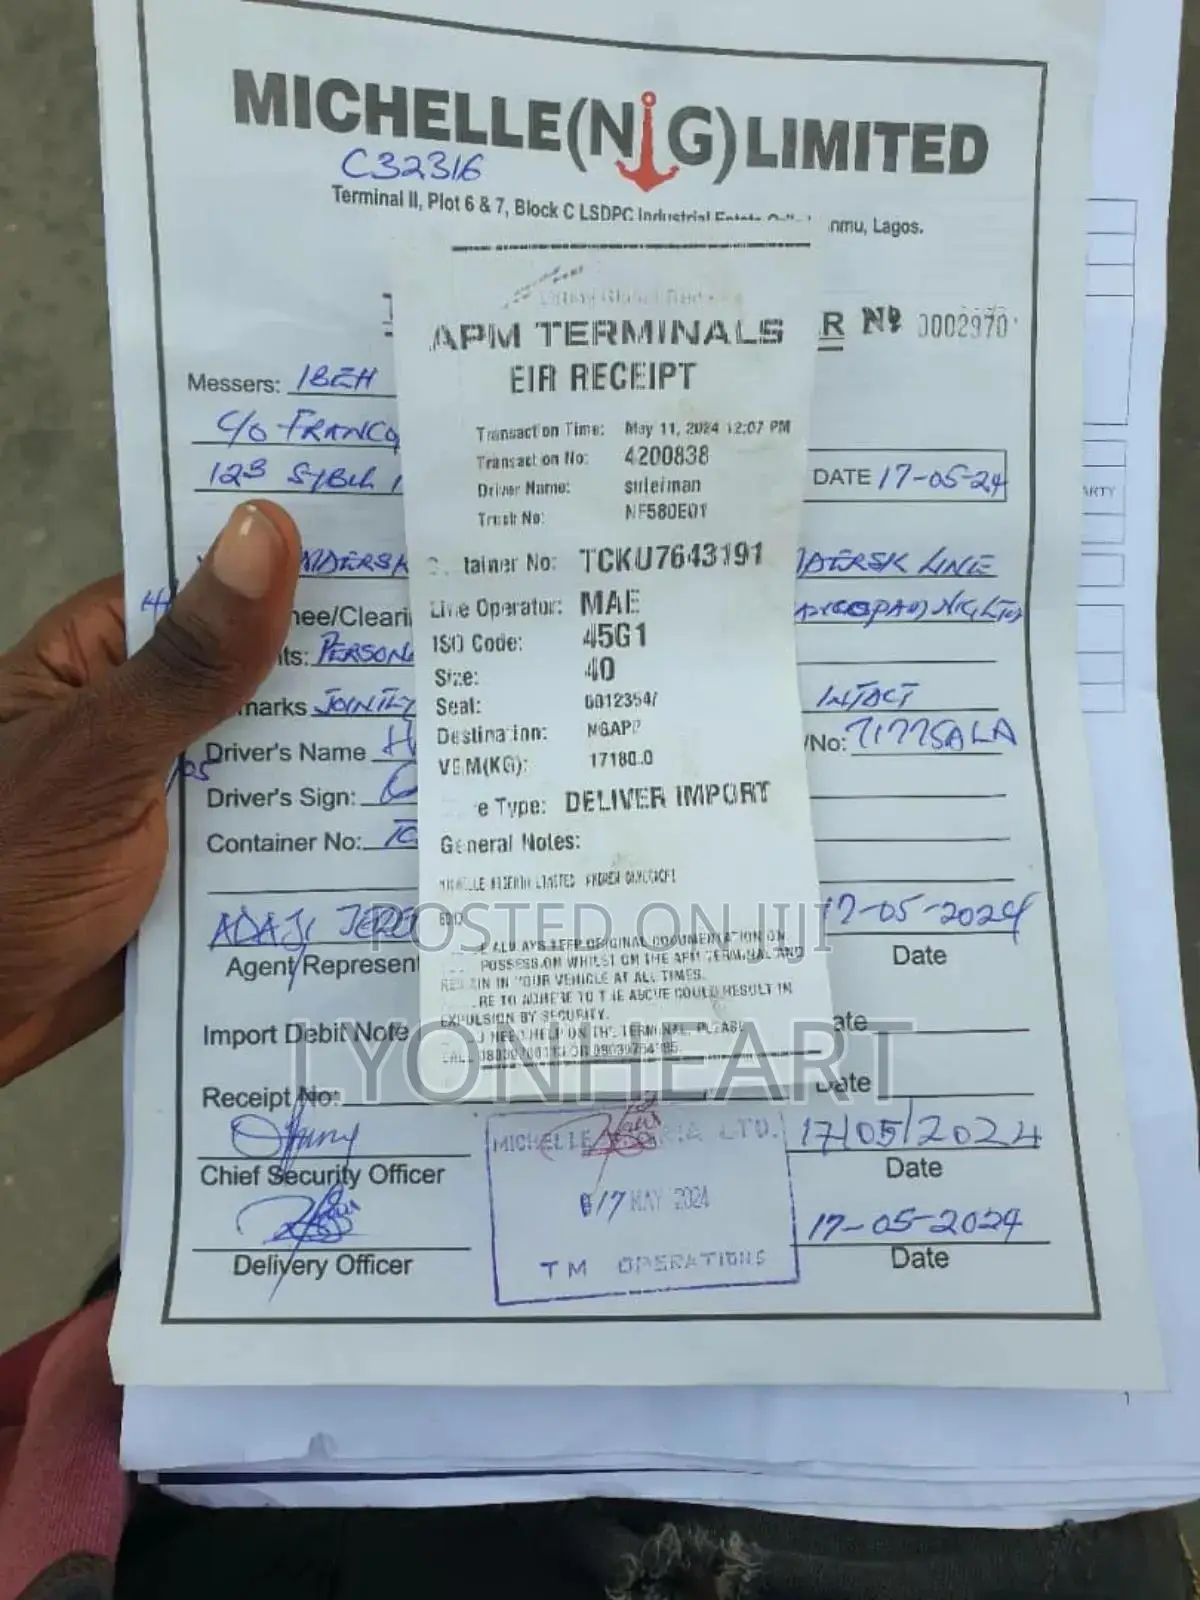 MICHELLE(NIG)LIMITED
C32316
Terminal II, Plot 6 & 7, Block C LSDPC Industrial Estate nmu, Lagos.
R No 0002970
APM TERMINALS
EIR RECEIPT
Messers: IBEH
C/O FRANCO
123
DATE 17-05-24
Transaction Time: May 11, 2024 12:07 PM
Transaction No: 4200838
Driver Name: suleiman
Truck No: NF580E01
tainer No: TCKU7643191
Line Operator: MAE
ISO Code: 45G1
Size: 40
Seal:
Destination: NGAPP
VGM(KG): 17180.0
e Type: DELIVER IMPORT
General Notes:
MAERSK
MAERSK LINE
nee/Cleari
ts: PERSONA
marks JOINTLY
INTACT
Driver's Name H
/No: T1775ALA
Driver's Sign:
Container No: TC
MICHELLE NIGERIA LIMITED
POSTED ON JIJI
ALWAYS KEEP ORIGINAL DOCUMENTATION ON
POSSESSION WHILST ON THE APM TERMINAL AND
IN YOUR VEHICLE AT ALL TIMES.
RE TO ADHERE TO THE ABOVE COULD RESULT IN
EXPULSION BY SECURITY.
NEED HELP ON THE TERMINAL, PLEASE
ADAJI
17-05-2024
Agent/Represent
Date
Import Debit Note
ate
LYONHEART
Receipt No:
Date
17/05/2024
Chief Security Officer
Date
MICHELLE LTD.
17 MAY 2024
TM OPERATIONS
17-05-2024
Delivery Officer
Date
ARTY
1